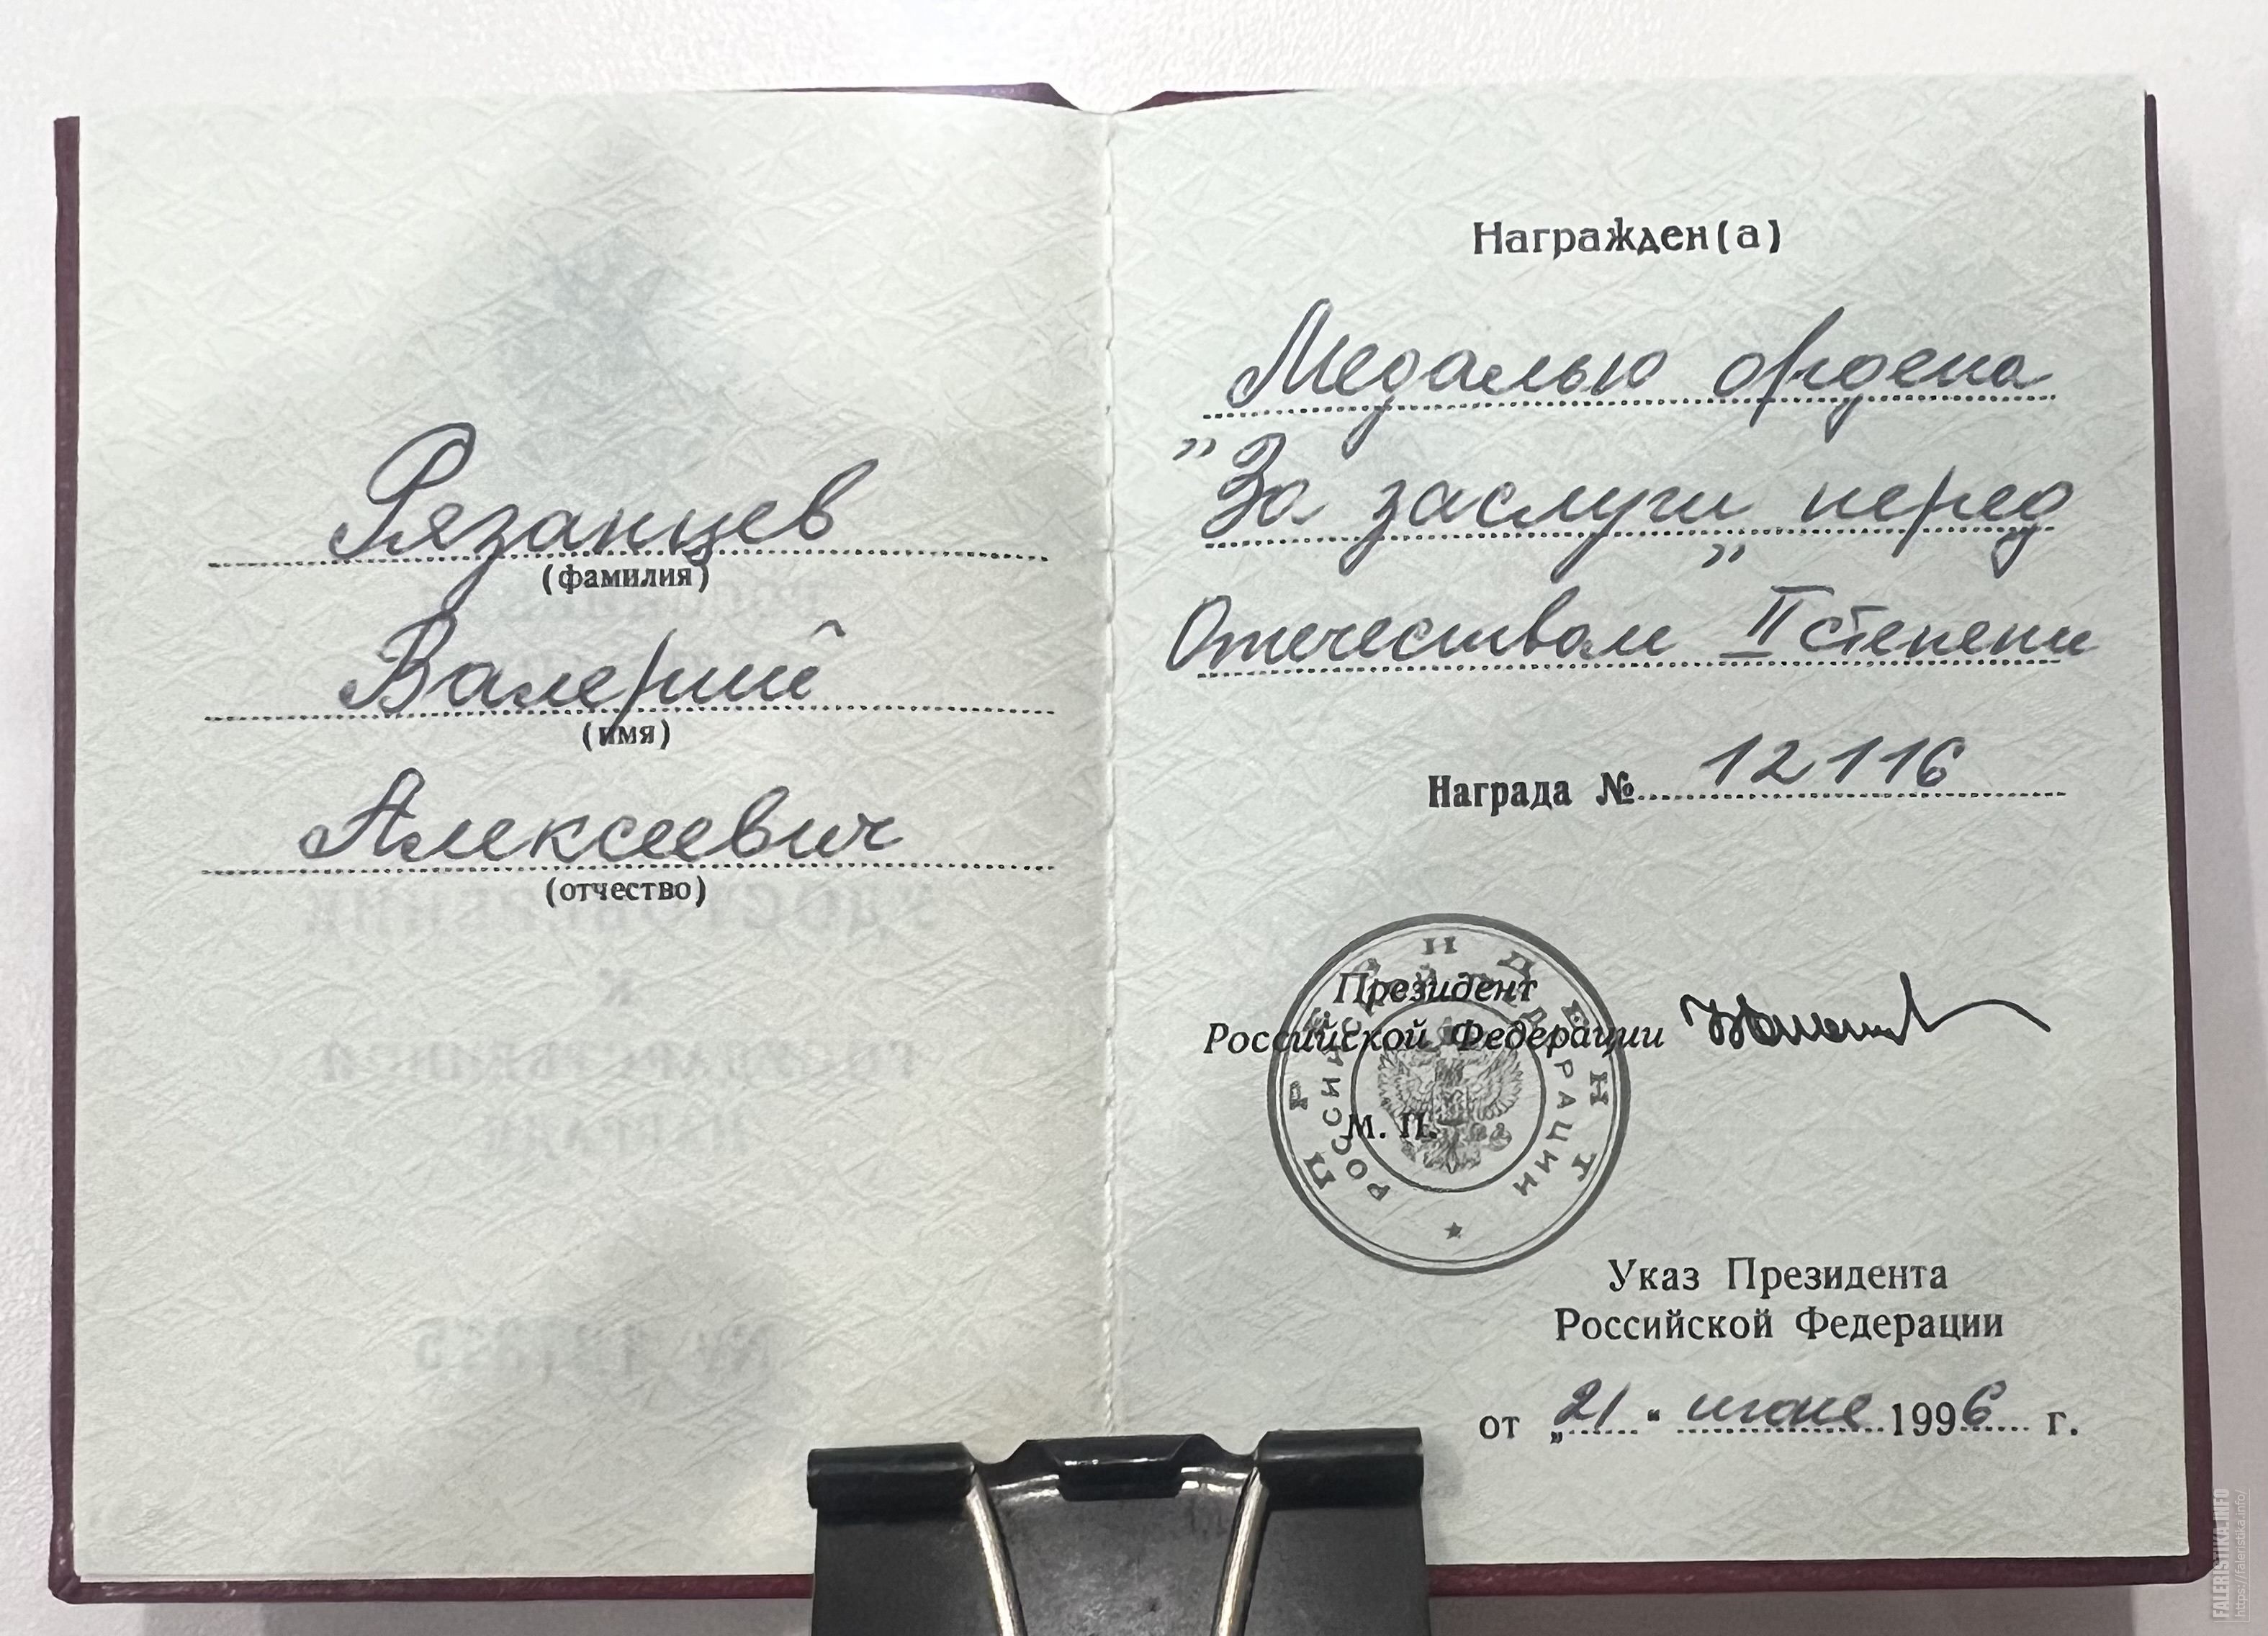 Рязанцев
(фамилия)
Валерий
(имя)
Алексеевич
(отчество)
Награжден(а)
Медалью ордена
"За заслуги перед
Отечеством" II степени
Награда № 12116
Президент
Российской Федерации
М. П.
ПРЕЗИДЕНТ
РОССИЙСКОЙ ФЕДЕРАЦИИ
Указ Президента
Российской Федерации
от „21“ июня 1996 г.
FALERISTIKA.INFO
https://faleristika.info/